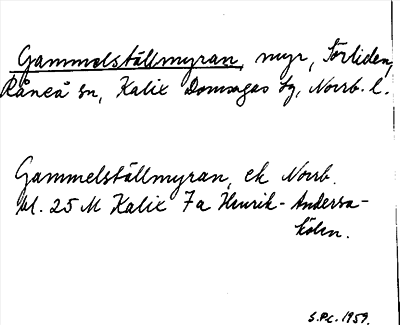 Gammelställmyran, myr, Torliden,
Råneå sn, Kalix Domsagas tg, Norrb. l.
Gammelställmyran, ek Norrb.
bl. 25 M Kalix 7a Henrik-Andersa-
kölen.
S.P.L. 1959.